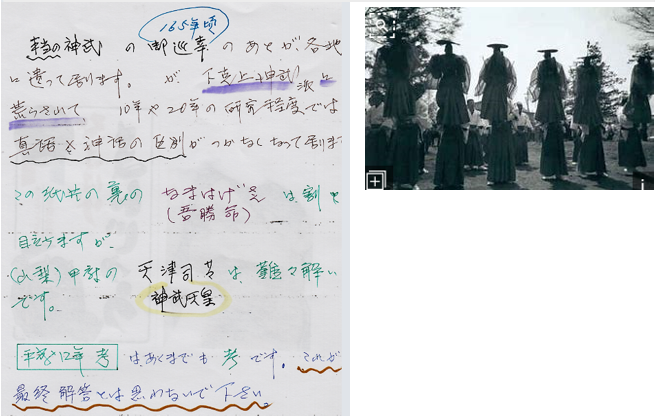 165年頃
本当の神武 の御巡幸のあとが各地
に遺って居ります。が 下克上神武派に
荒らされて 10年や20年の研究程度では
真話と神話の区別がつかなくなって居りま
この紙芸の裏の なまはげさん は割と
(吾勝命)
目立ちますが、
(山梨)甲府の 天津司舞は、難々解い
神武天皇
です。
平成12年 考 はあくまでも 考 です。これが
最終解答とは思わないで下さい。